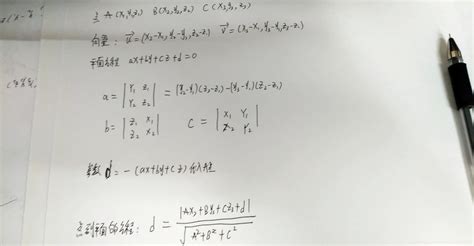 A(x₁,y₁,z₁) B(x₂,y₂,z₂) C(x₃,y₃,z₃)
向量: u⃗=(x₂-x₁,y₂-y₁,z₂-z₁) v⃗=(x₃-x₁,y₃-y₁,z₃-z₁)
平面方程 ax+by+cz+d=0
a = |Y₁ Z₁; Y₂ Z₂| = (y₂-y₁)(z₃-z₁)-(y₃-y₁)(z₂-z₁)
b = |Z₁ X₁; Z₂ X₂| C = |X₁ Y₁; X₂ Y₂|
d = -(ax+by+cz)
点到平面的 : d = |AX₁+BY₁+CZ₁+d| / √(A²+B²+C²)